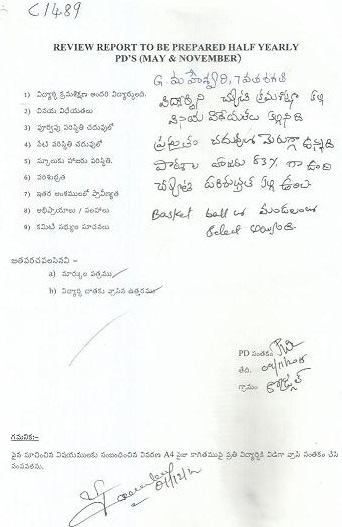 C1489
REVIEW REPORT TO BE PREPARED HALF YEARLY
PD'S (MAY & NOVEMBER)
G. మహేశ్వరి, 7వ తరగతి
1) విద్యార్థి క్రమశిక్షణ అందరి విద్యార్థులది.
2) వినయ విధేయతలు
3) పూర్వపు పరిస్థితి చదువులో
4) నేటి పరిస్థితి చదువులో
5) స్కూలుకు హాజరు పరిస్థితి.
6) పరిశుభ్రత
7) ఇతర అంశములలో ప్రావీణ్యత
8) అభిప్రాయాలు / సలహాలు
9) కమిటి సభ్యుల సూచనలు
క్రమశిక్షణ కలి
వినయ విధేయతలు
ప్రస్తుతం చదువులో ఉన్నది
హాజరు 83% గా ఉంది
పరిశుభ్రత కలి ఉంది
Basket ball లో మండలంలో
Select అయ్యింది.
జతపరచవలసినవి –
a) మార్కుల పత్రము
b) విద్యార్థి దాతకు వ్రాసిన ఉత్తరము
PD సంతకం
తేది.
గ్రామం
గమనిక:-
పైన సూచించిన విషయములకు సంబంధించిన వివరణ A4 సైజు కాగితముపై ప్రతి విద్యార్థికి విడిగా వ్రాసి సంతకం చేసి
పంపవలెను.